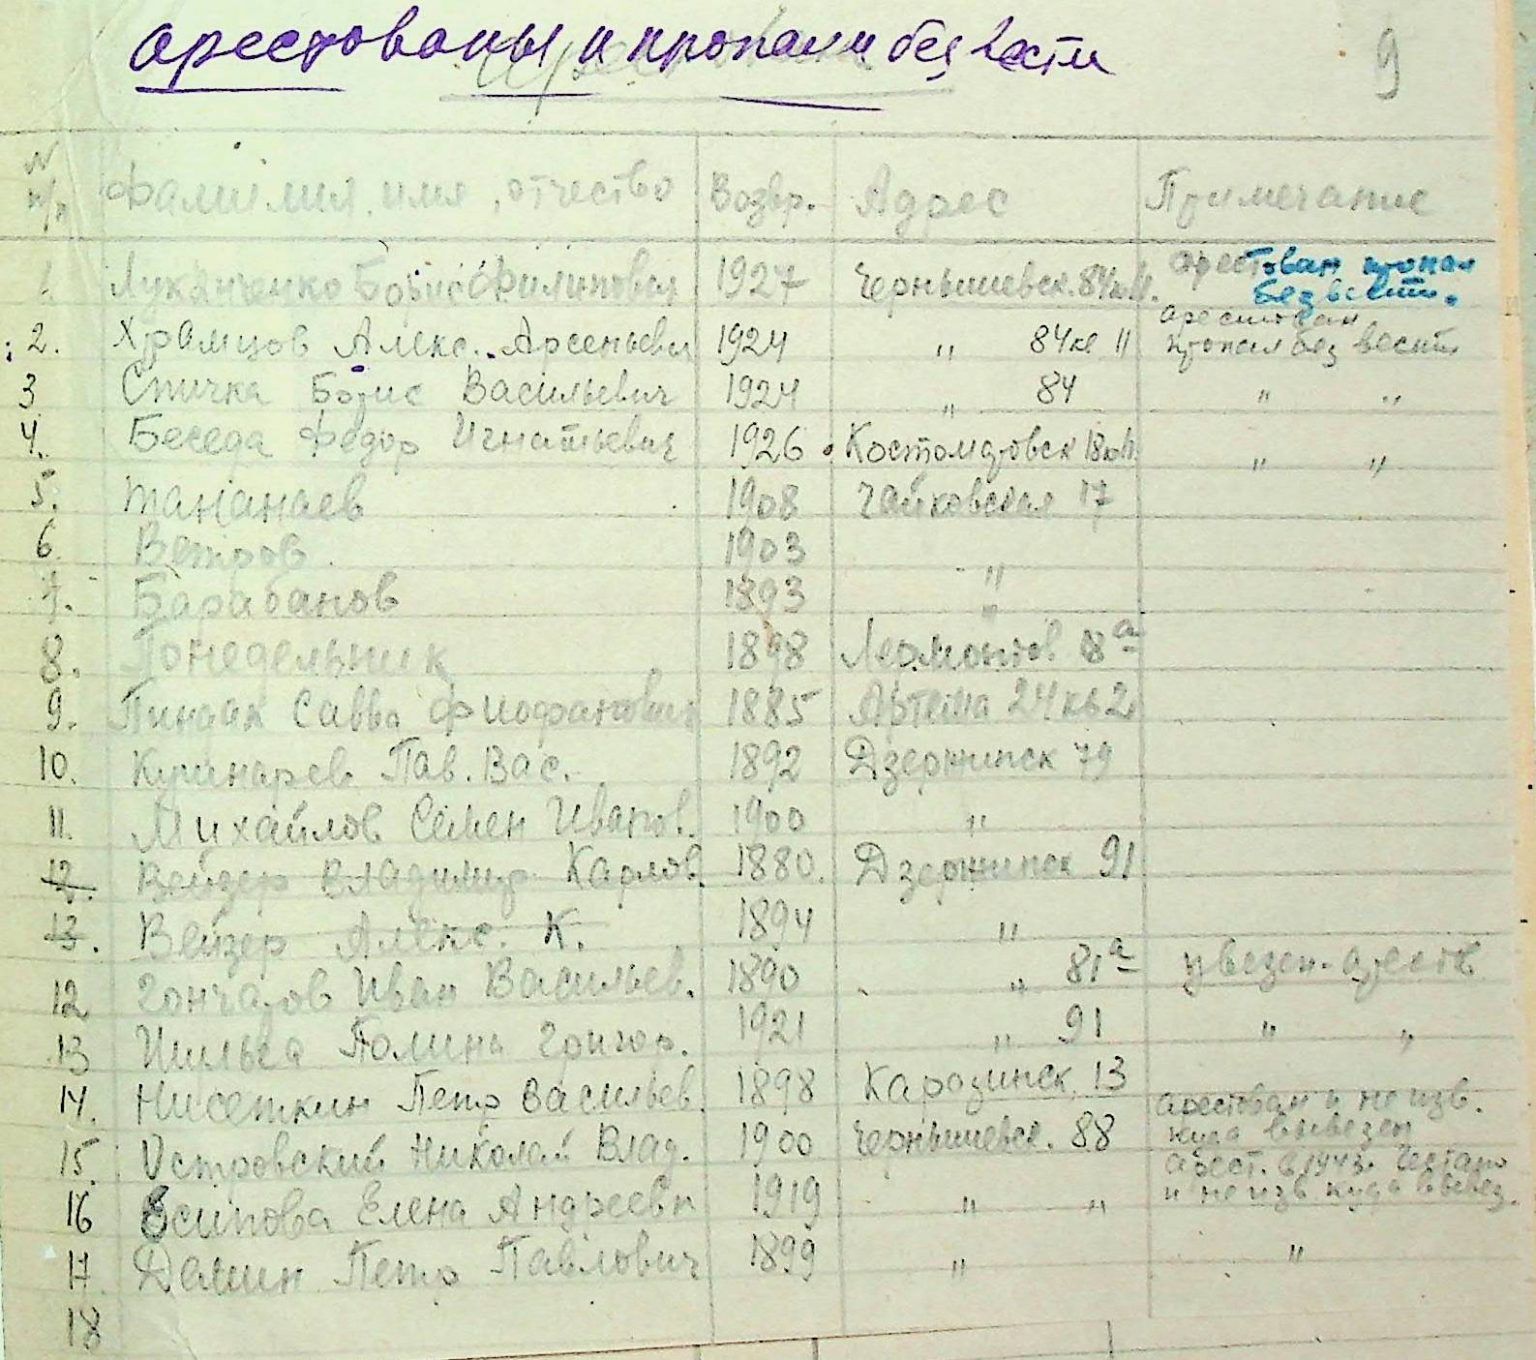 арестованы и пропали без вести
9
N п/п Фамилия, имя, отчество Возвр. Адрес Примечание
1. Лукьянченко Борис Филиппович 1927 Чернышевск. 84 кв 11. арестован пропал без вести.
2. Храмцов Алекс. Арсеньевич 1924 " 84 кв 11 арестован пропал без вести
3 Спичка Борис Васильевич 1924 " 84 " "
4. Беседа Федор Игнатьевич 1926 Костомаровск 18 " "
5. Тананаев 1908 Чайковская 17
6. Ветров 1903 "
7. Барабанов 1893 "
8. Понедельник 1898 Лермонтов 18а
9. Пиндак Савва Феофанович 1885 Артема 24 кв 2
10. Кушнарев Пав. Вас. 1892 Дзержинск 79
11. Михайлов Семен Иванов. 1900 "
12. Вейзер Владимир Карлов. 1880. Дзержинск 91
13. Вейзер Алекс. К. 1894 "
12 Гончаров Иван Васильев. 1890 " 81а увезен
13 Полина Григор. 1921 " 91 " "
14. Нисеткин Петр Васильев. 1898 Каразинск. 13
15. Островский Николай Влад. 1900 Чернышевск. 88 арестован и не изв. куда вывезен
16 Осипова Елена Андреевн 1919 " " арест. в 1943г. Гестапо и не изв. куда вывез.
17. Демин Петр Павлович 1899 " "
18